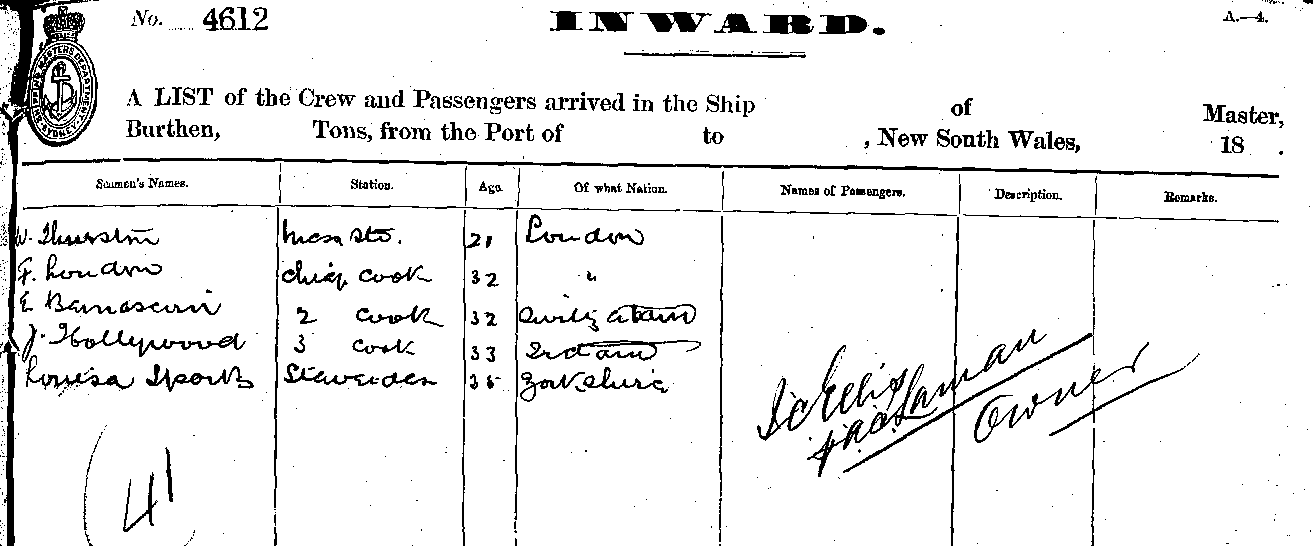 No. 4612
INWARD.
A.—4.
SHIPPING MASTERS DEPARTMENT SYDNEY
A LIST of the Crew and Passengers arrived in the Ship of Master,
Burthen, Tons, from the Port of to , New South Wales, 18 .
Seamen's Names. Station. Age. Of what Nation. Names of Passengers. Description. Remarks.
W. Thurston Mess Std. 21 London
F. London chief cook 32 "
E 2 cook 32
J. Hollywood 3 cook 33 Ireland
Louisa Sports Stewardess 35 Yorkshire
Owner
41